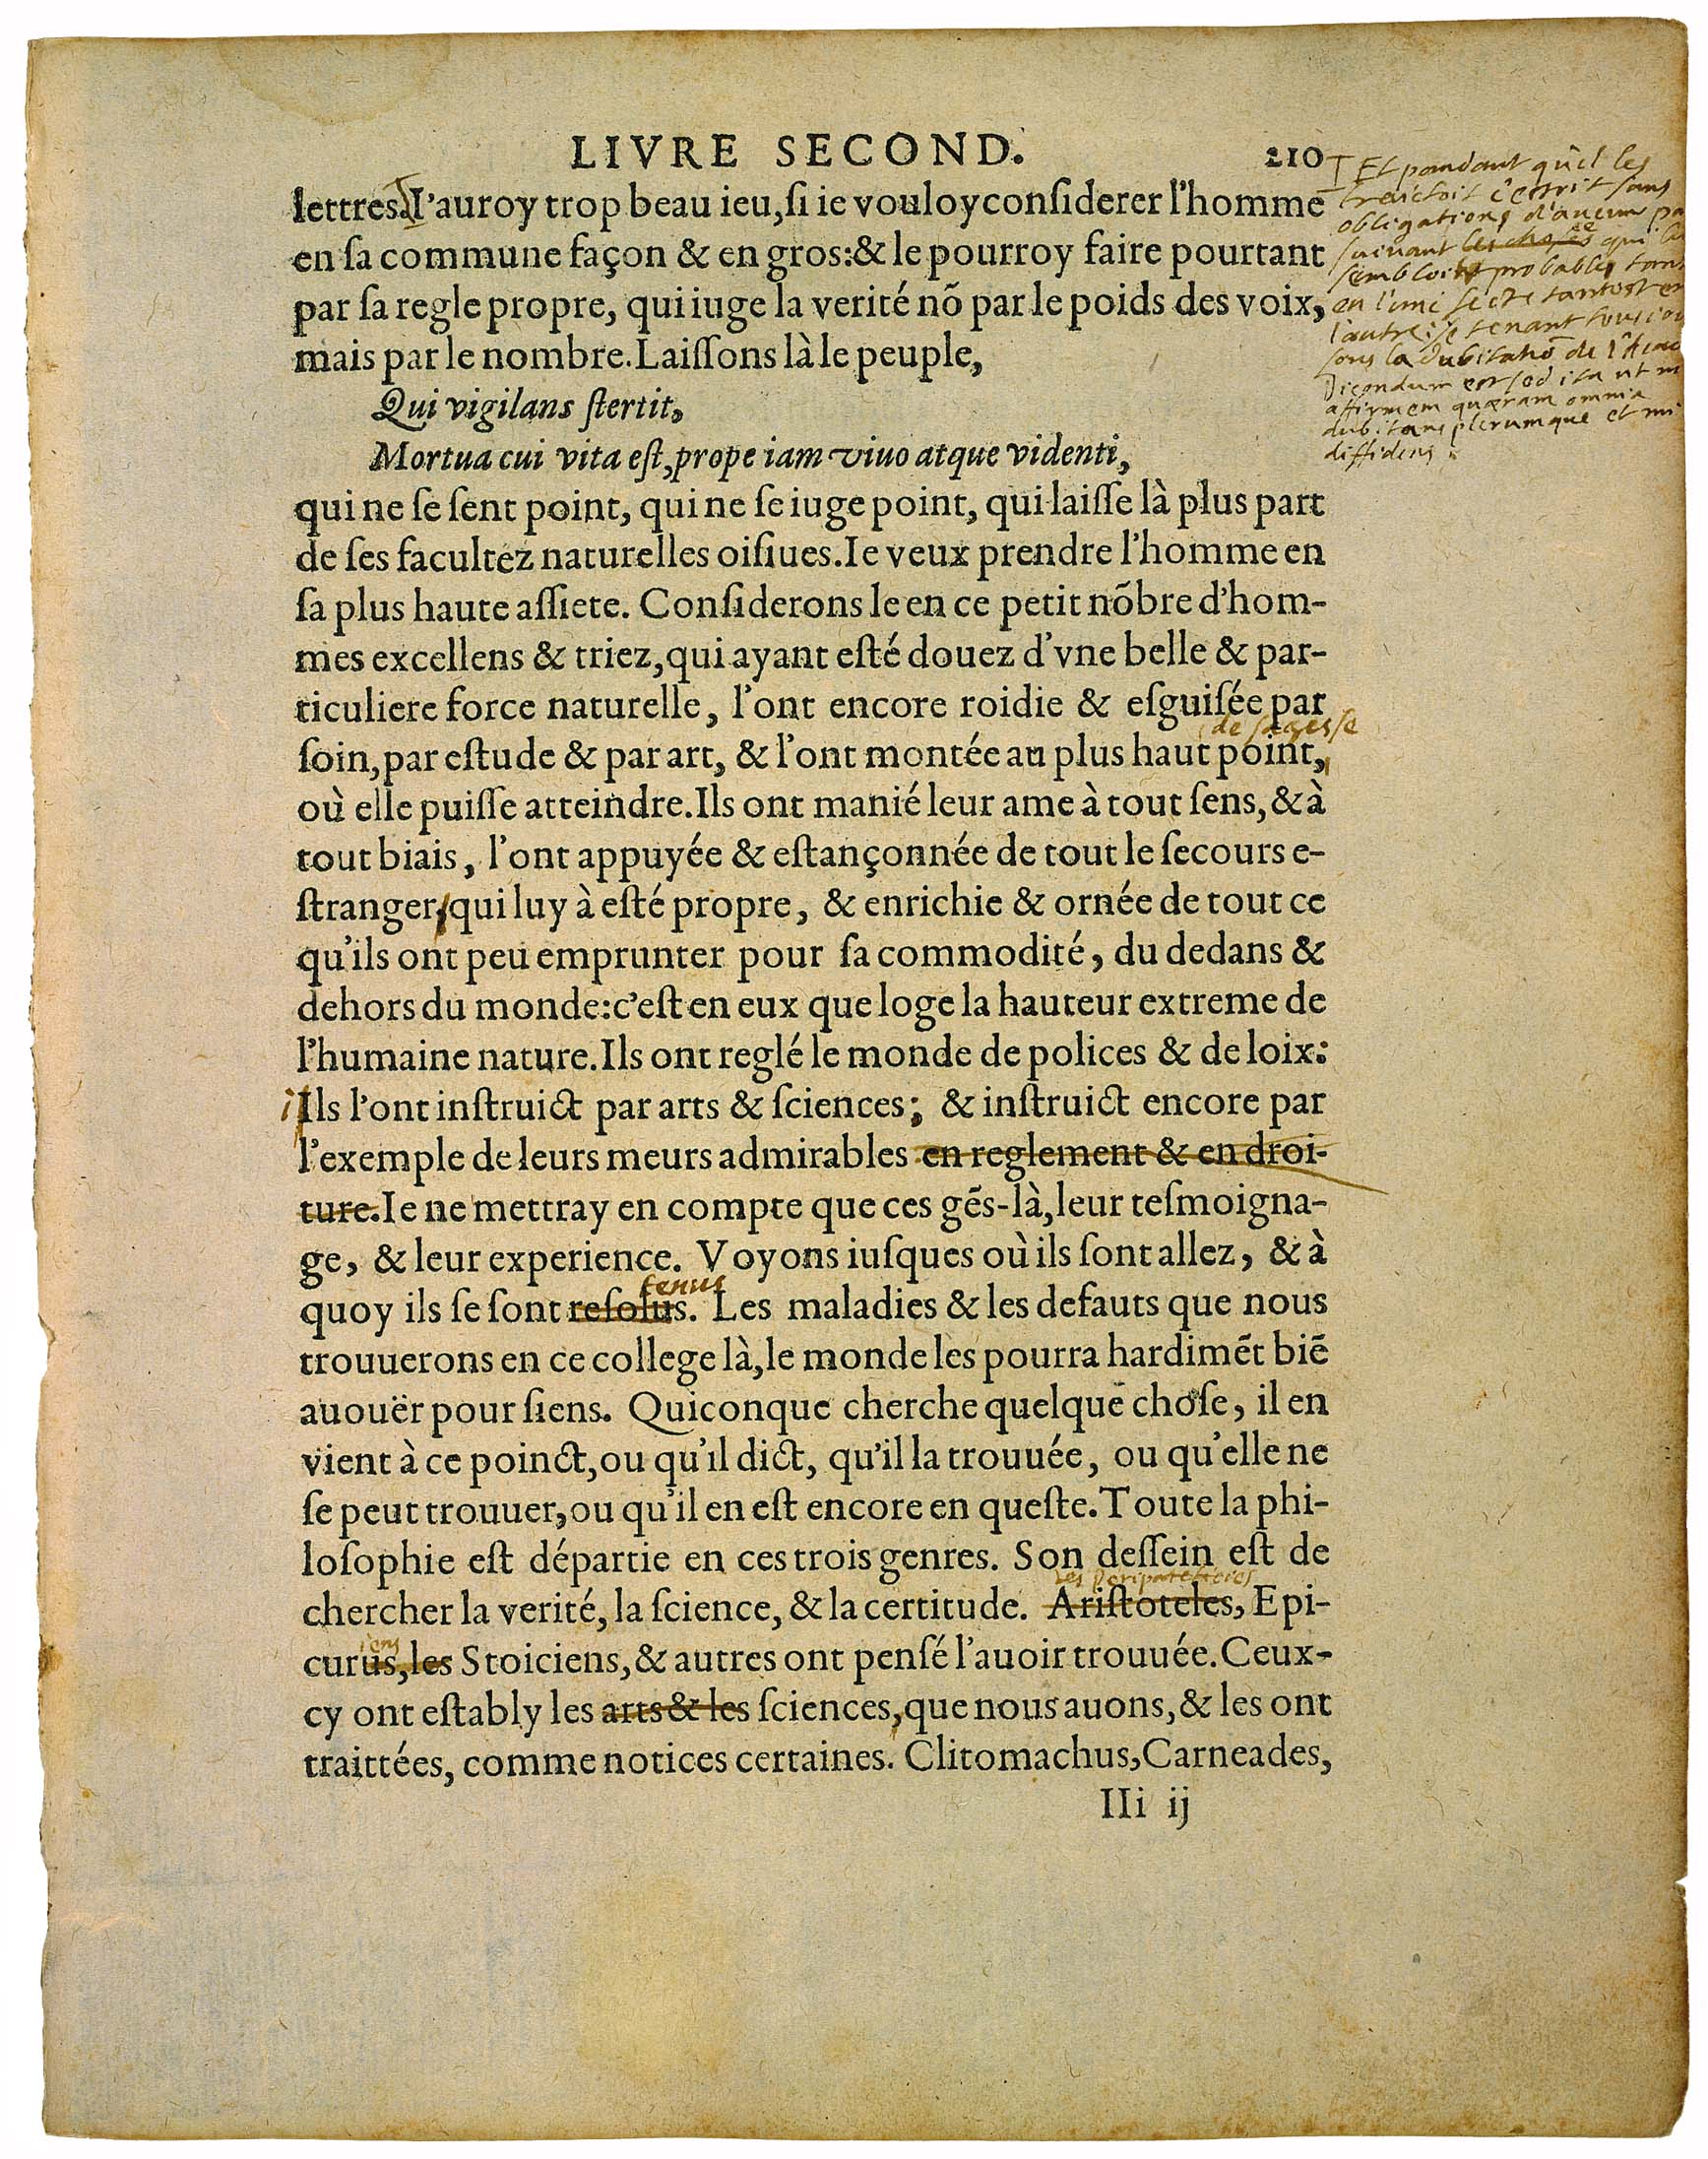 LIVRE SECOND. 210
lettres. I'auroy trop beau ieu, ſi ie vouloy conſiderer l'homme
en ſa commune façon & en gros: & le pourroy faire pourtant
par ſa regle propre, qui iuge la verité nõ par le poids des voix,
mais par le nombre. Laiſſons là le peuple,
Qui vigilans ſtertit,
Mortua cui vita eſt, prope iam viuo atque videnti,
qui ne ſe ſent point, qui ne ſe iuge point, qui laiſſe là plus part
de ſes facultez naturelles oiſiues. Ie veux prendre l'homme en
ſa plus haute aſſiete. Conſiderons le en ce petit nõbre d'hom-
mes excellens & triez, qui ayant eſté douez d'vne belle & par-
ticuliere force naturelle, l'ont encore roidie & eſguiſée par
de sagesse
ſoin, par eſtude & par art, & l'ont montée au plus haut point,
où elle puiſſe atteindre. Ils ont manié leur ame à tout ſens, & à
tout biais, l'ont appuyée & eſtançonnée de tout le ſecours e-
ſtranger, qui luy à eſté propre, & enrichie & ornée de tout ce
qu'ils ont peu emprunter pour ſa commodité, du dedans &
dehors du monde: c'eſt en eux que loge la hauteur extreme de
l'humaine nature. Ils ont reglé le monde de polices & de loix:
i Ils l'ont inſtruict par arts & ſciences; & inſtruict encore par
l'exemple de leurs meurs admirables en reglement & en droi-
ture. Ie ne mettray en compte que ces gẽs-là, leur teſmoigna-
ge, & leur experience. Voyons iuſques où ils ſont allez, & à
tenus
quoy ils ſe ſont reſolus. Les maladies & les defauts que nous
trouuerons en ce college là, le monde les pourra hardimẽt biẽ
auouër pour ſiens. Quiconque cherche quelque choſe, il en
vient à ce poinct, ou qu'il dict, qu'il la trouuée, ou qu'elle ne
ſe peut trouuer, ou qu'il en eſt encore en queſte. Toute la phi-
loſophie eſt départie en ces trois genres. Son deſſein eſt de
les Peripateticiens
chercher la verité, la ſcience, & la certitude. Ariſtoteles, Epi-
iens
curus, les Stoiciens, & autres ont penſé l'auoir trouuée. Ceux-
cy ont eſtably les arts & les ſciences, que nous auons, & les ont
traittées, comme notices certaines. Clitomachus, Carneades,
IIi ij
Et pandant qu'il les
traictoit c'estoit sans
obligations d'aucun
suivant les choses ce qui
sembloit probable
en l'une secte tantost en
l'autre: se tenant
sous la dubitatiõ de
Dicendum est sed ita ut
affirmem quæram omnia
dubitans plerumque et mi
diffidens